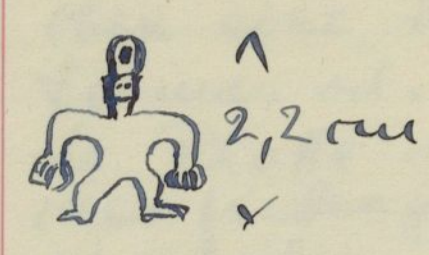 2,2 cm